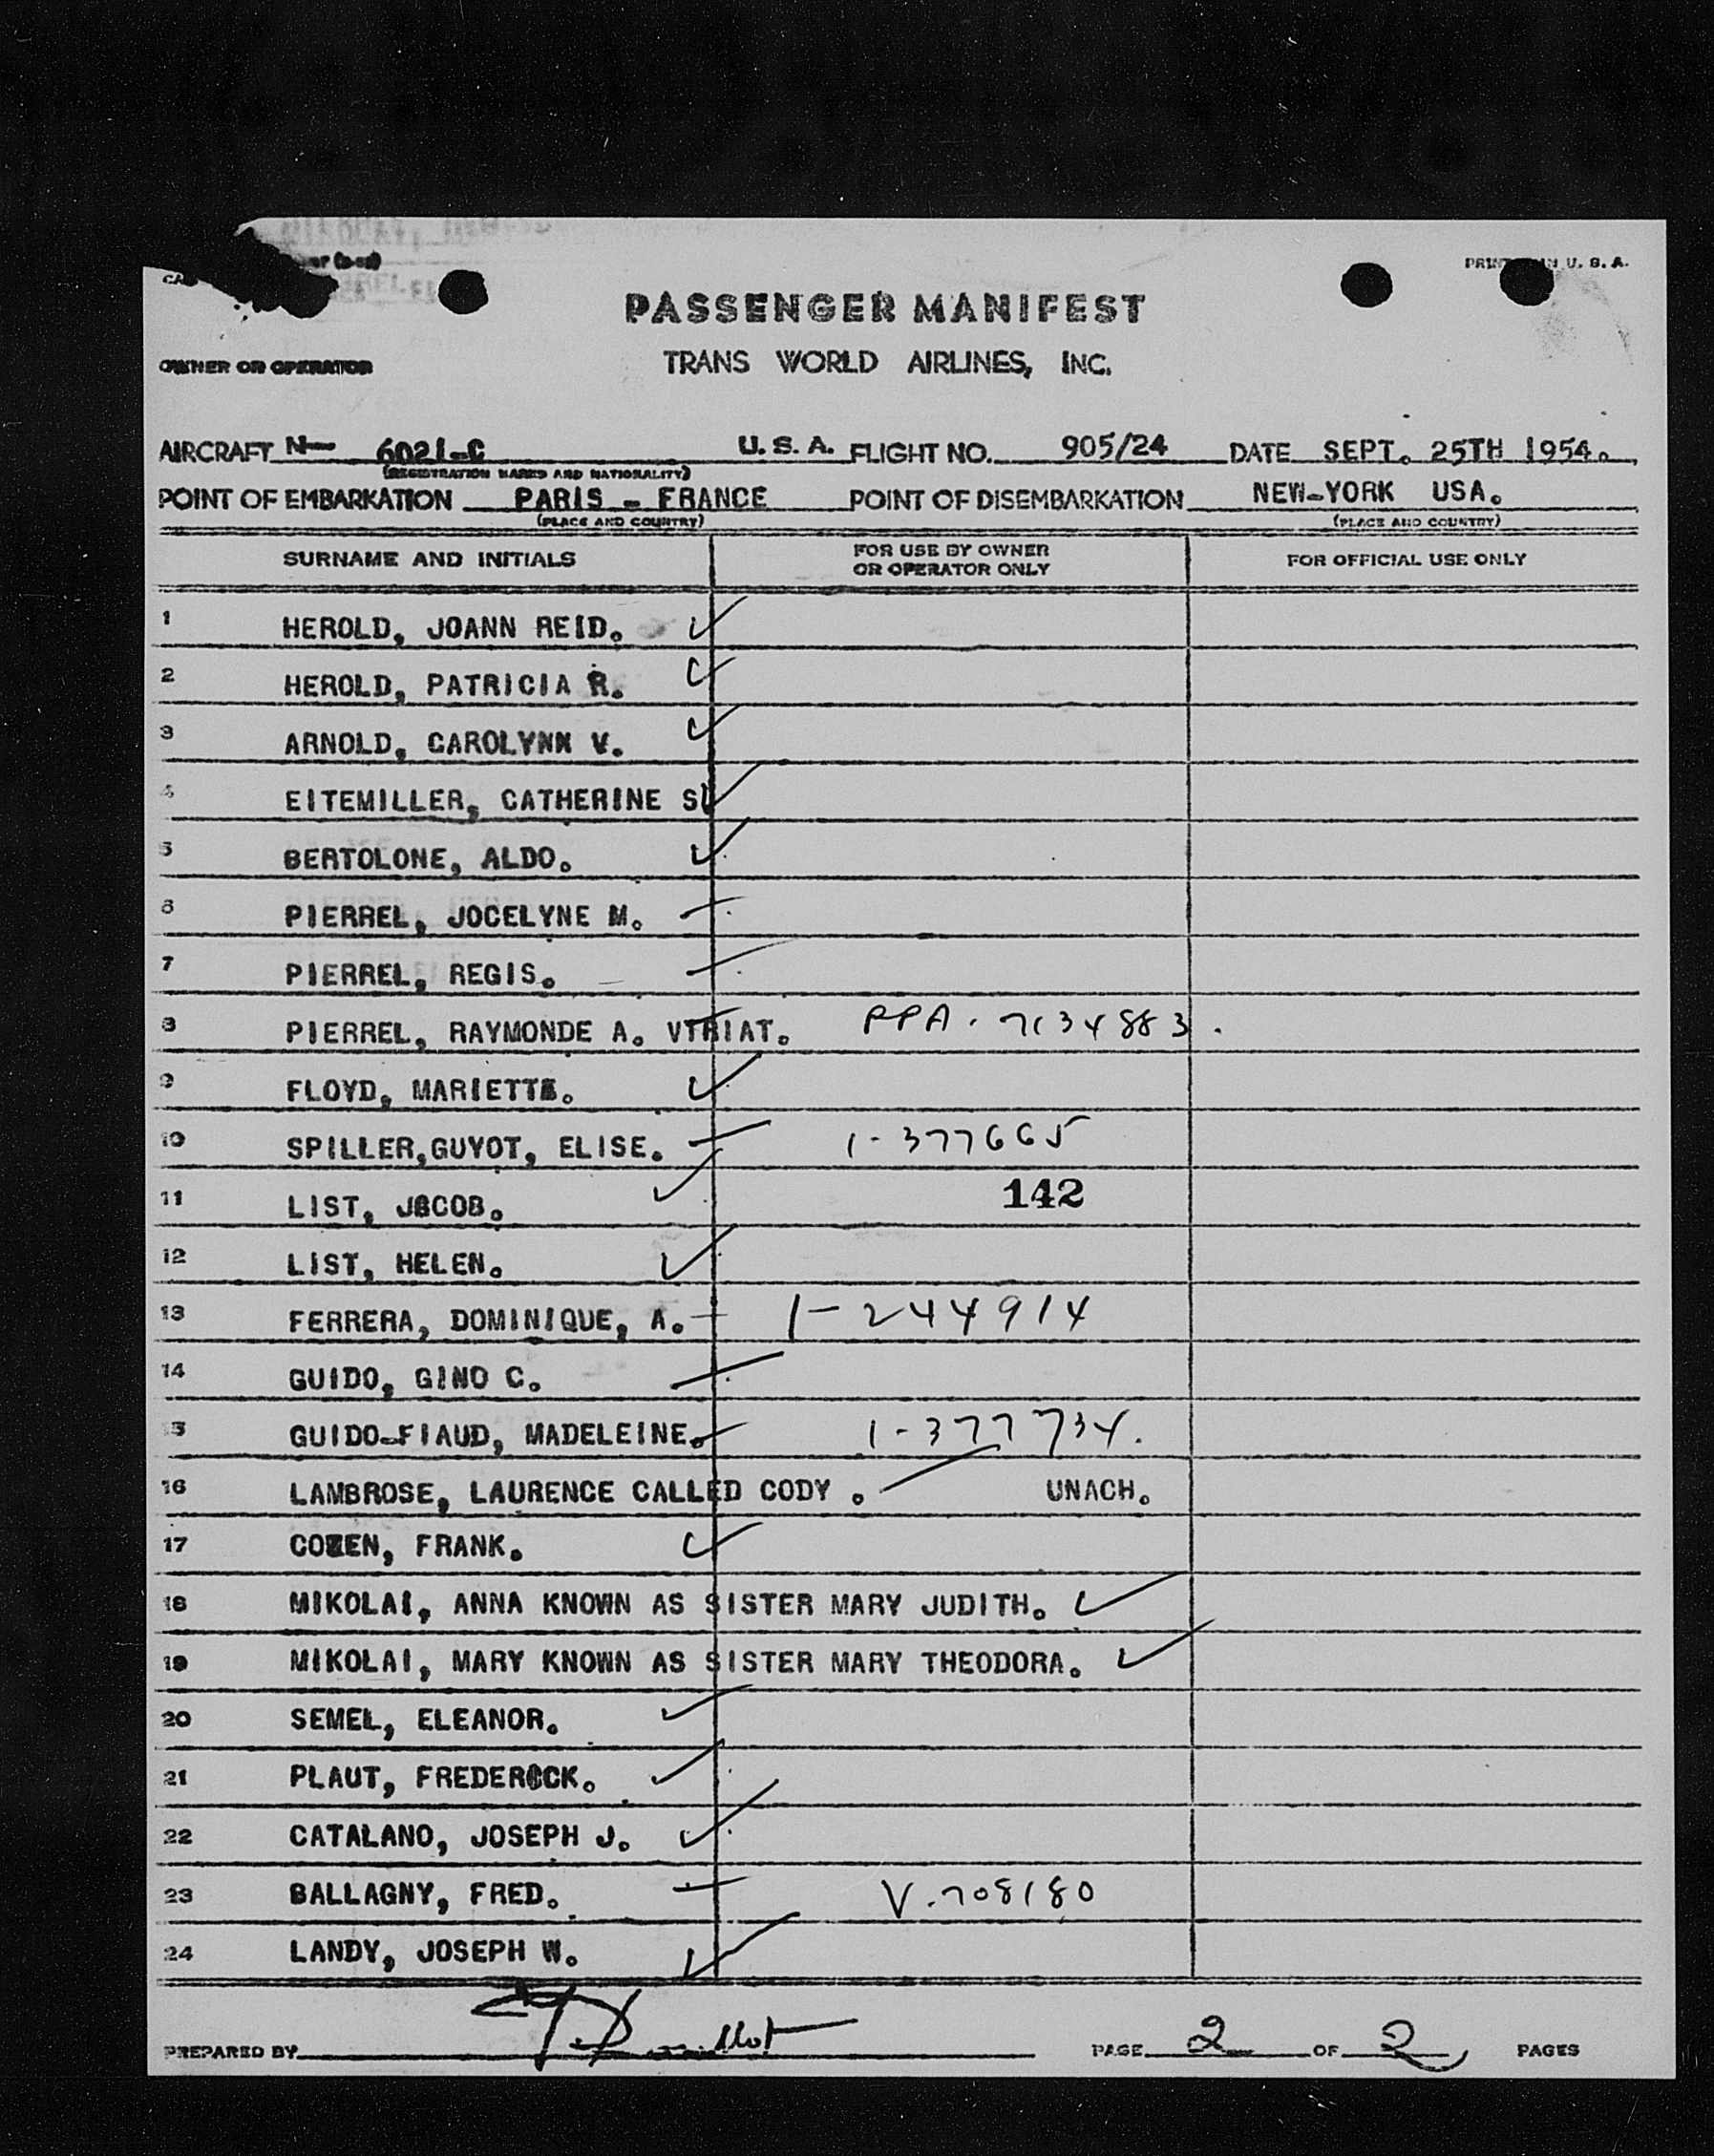 PRINTED IN U. S. A.
PASSENGER MANIFEST
OWNER OR OPERATOR TRANS WORLD AIRLINES, INC.
AIRCRAFT N— 6021-C U. S. A. FLIGHT NO. 905/24 DATE SEPT. 25TH 1954.
(REGISTRATION MARKS AND NATIONALITY)
POINT OF EMBARKATION PARIS - FRANCE POINT OF DISEMBARKATION NEW-YORK USA.
(PLACE AND COUNTRY) (PLACE AND COUNTRY)
SURNAME AND INITIALS FOR USE BY OWNER OR OPERATOR ONLY FOR OFFICIAL USE ONLY
1 HEROLD, JOANN REID. ✓
2 HEROLD, PATRICIA R. ✓
3 ARNOLD, CAROLYNN V. ✓
4 EITEMILLER, CATHERINE S ✓
5 BERTOLONE, ALDO. ✓
6 PIERREL, JOCELYNE M.
7 PIERREL, REGIS.
8 PIERREL, RAYMONDE A. VTRIAT. PPA. 7134883.
9 FLOYD, MARIETTA. ✓
10 SPILLER,GUYOT, ELISE. 1-377665
11 LIST, JACOB. ✓ 142
12 LIST, HELEN. ✓
13 FERRERA, DOMINIQUE, A. 1-244914
14 GUIDO, GINO C.
15 GUIDO-FIAUD, MADELEINE. 1-377734.
16 LAMBROSE, LAURENCE CALLED CODY . UNACH.
17 COZEN, FRANK. ✓
18 MIKOLAI, ANNA KNOWN AS SISTER MARY JUDITH. ✓
19 MIKOLAI, MARY KNOWN AS SISTER MARY THEODORA. ✓
20 SEMEL, ELEANOR. ✓
21 PLAUT, FREDERICK. ✓
22 CATALANO, JOSEPH J. ✓
23 BALLAGNY, FRED. V.708180
24 LANDY, JOSEPH W. ✓
PREPARED BY PAGE 2 OF 2 PAGES